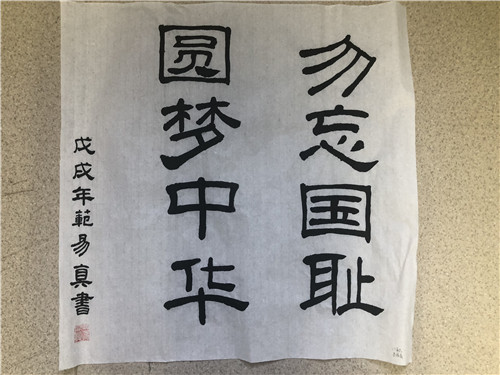 勿忘国耻
圆梦中华
戊戌年範易真書